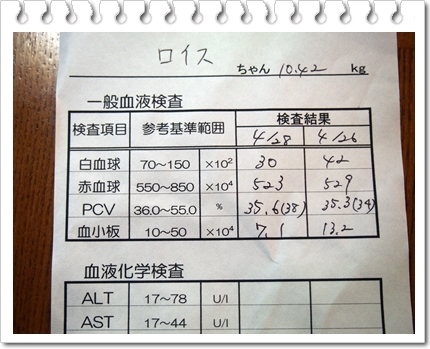 ロイス
ちゃん 10.42 kg
一般血液検査
検査項目 参考基準範囲 検査結果
4/28 4/26
白血球 70～150 ×10² 30 42
赤血球 550～850 ×10⁴ 523 529
PCV 36.0～55.0 % 35.6(38) 35.3(34)
血小板 10～50 ×10⁴ 7.1 13.2
血液化学検査
ALT 17～78 U/l
AST 17～44 U/l